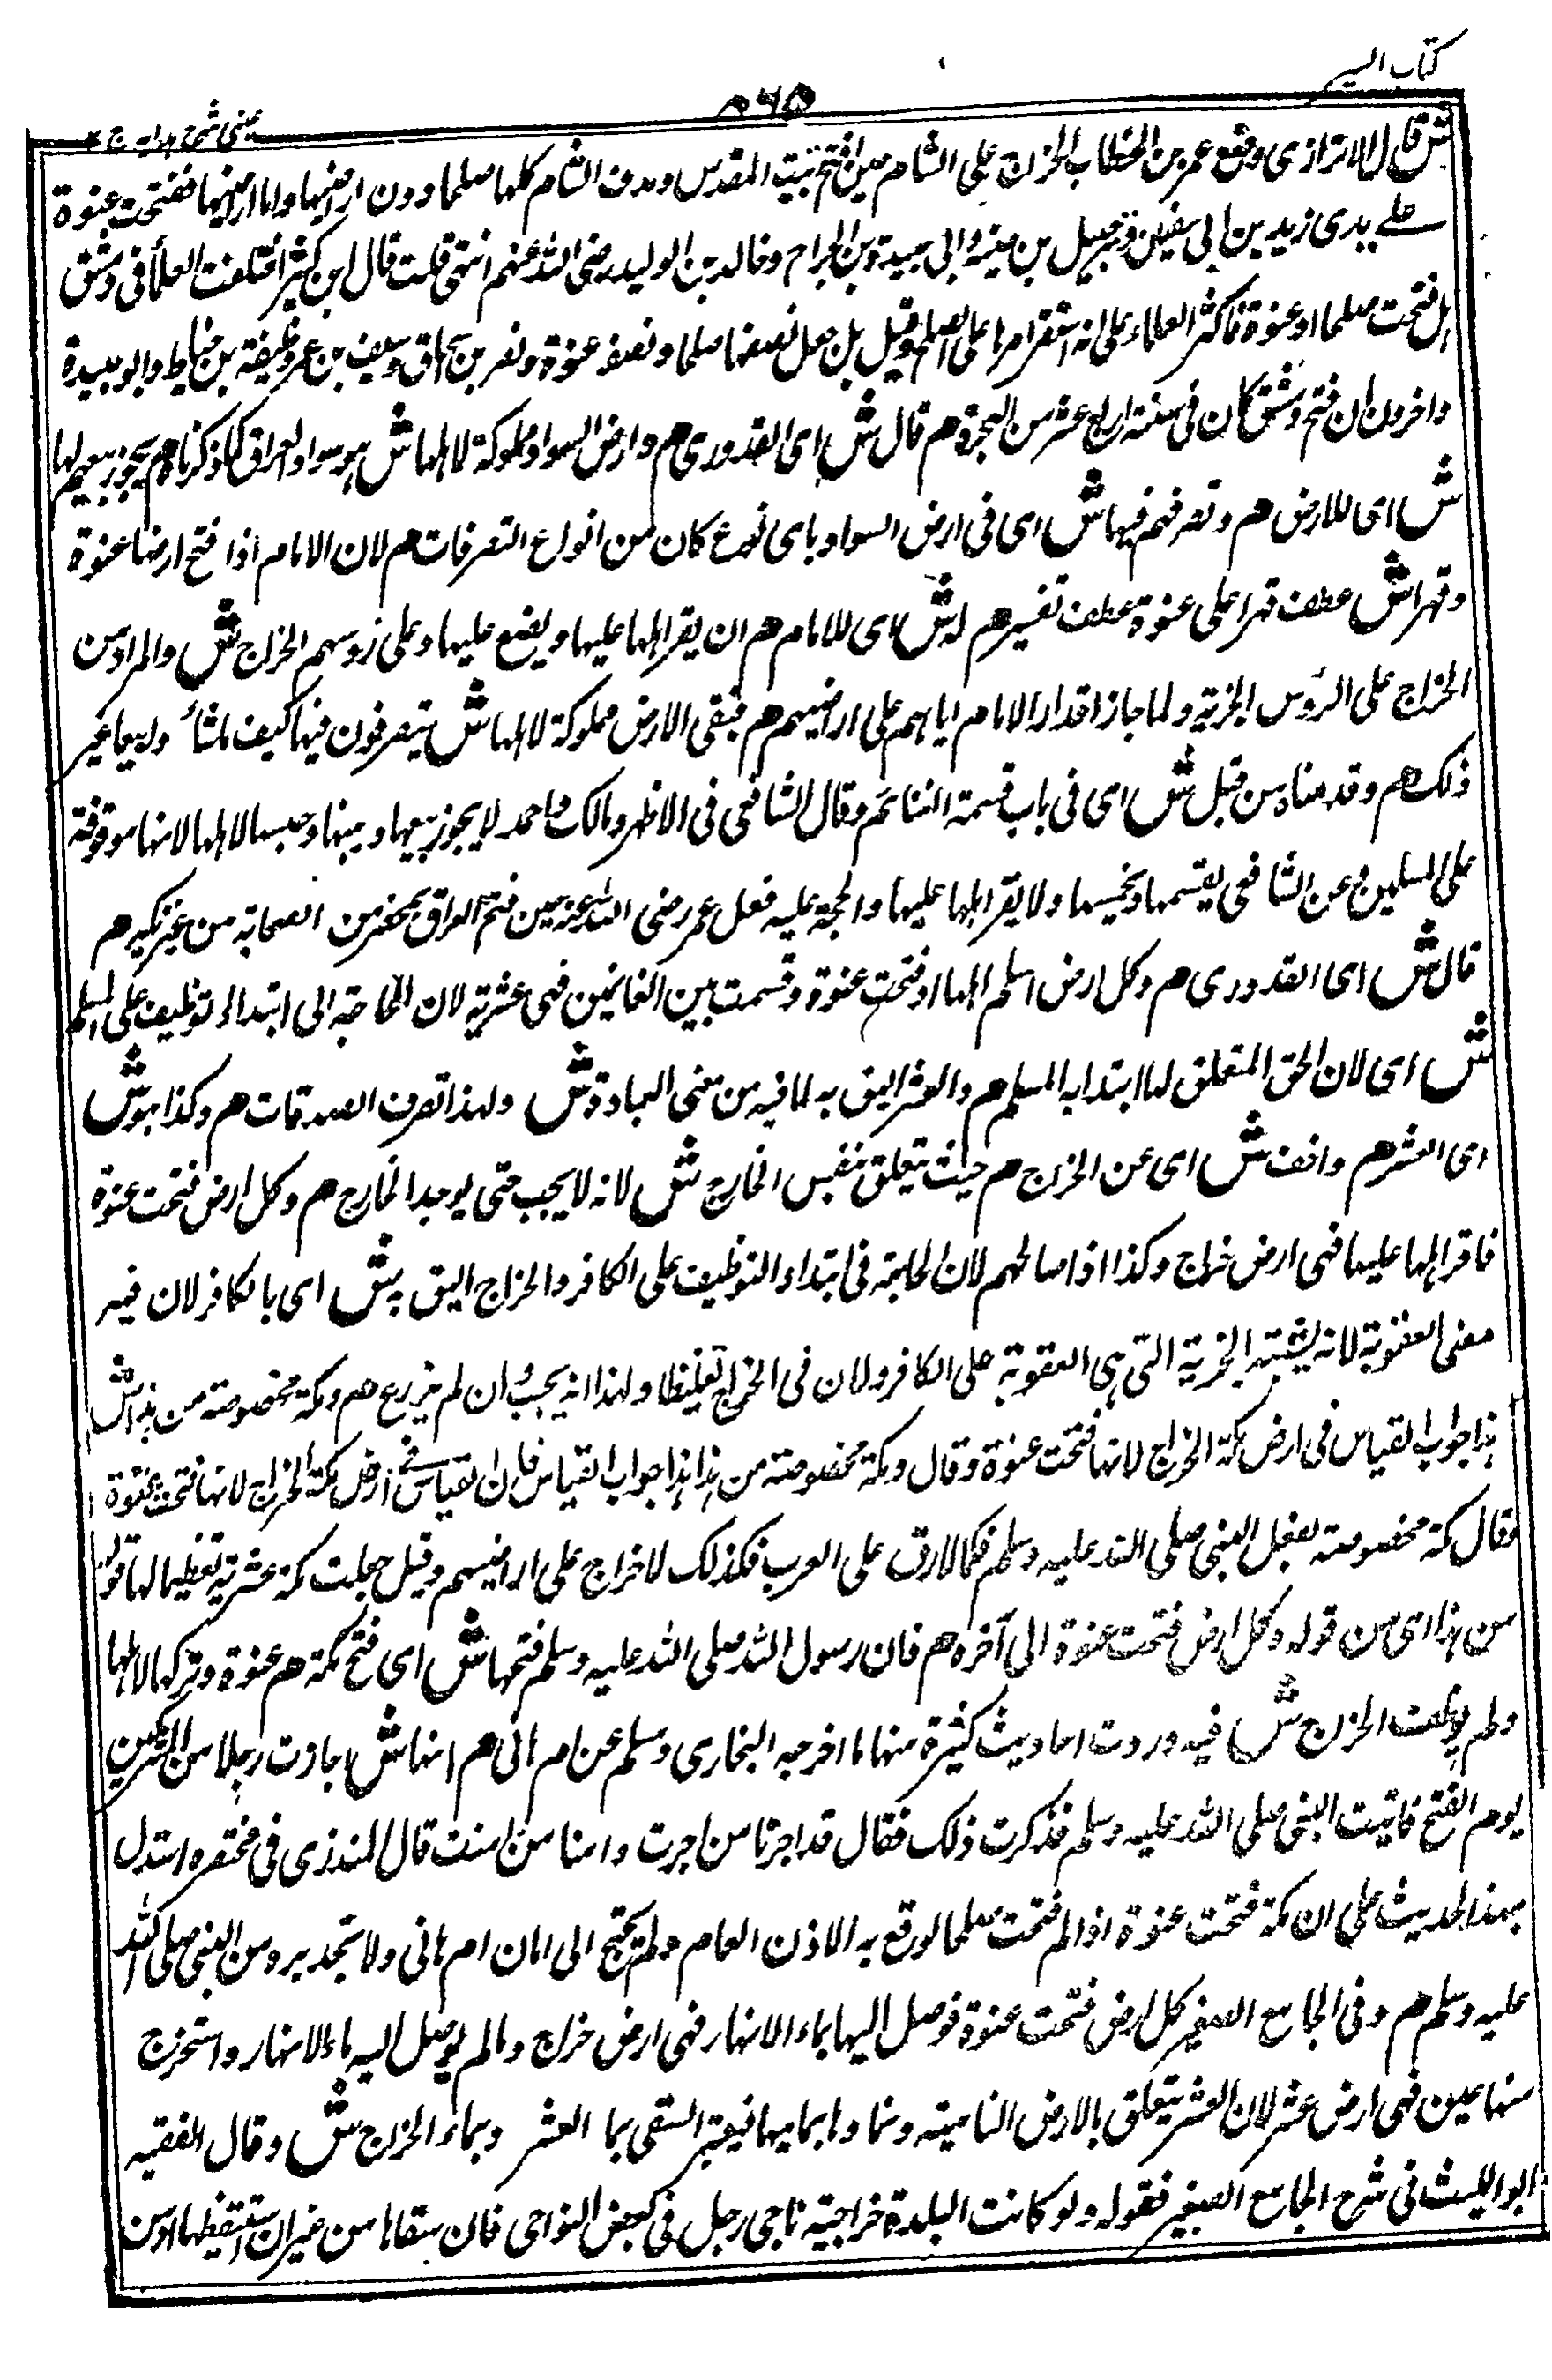 كتاب السير
٨٦٥
عینی شرح ہدایہ ج ۲
ش قال الاترازى وضع عمر بن الخطاب الخراج على الشام حين افتتح بيت المقدس ومدن الشام كلها صلحا دون اراضيها واما اراضيها ففتحت عنوة
على يدى زيد بن ابى سفين وشرحبيل بن حسنة وابى عبيدة بن الجراح وخالد بن الوليد رضى الله عنهم انتهى قلت قال ابن كثير اختلفت العلماء فى دمشق
هل فتحت صلحا او عنوة فاكثر العلماء على انه استقر امرها على الصلح وقيل بل جعل نصفها صلحا ونصفه عنوة ونصر بن سحاق وسيف بن عمر وخليفة بن خياط وابو عبيدة
واخرون ان فتح دمشق كان فى سنة اربع عشر من الهجرة هم قال ش اى القدورى هم وارض السواد مملوكة لاهلها ش هو سواد العراق كما ذكرنا هم يجوز بيعهم لها
ش اى للارض هم وتصرفهم فيها ش اى فى ارض السواد باى نوع كان من انواع التصرفات هم لان الامام اذا فتح ارضا عنوة
وقهرا ش عطف قهرا على عنوة عطف تفسير هم له ش اى للامام هم ان يقر اهلها عليها ويضع عليها وعلى رؤسهم الخراج ش والمراد من
الخراج على الرؤس الجزية ولما جاز اقدار الامام اياهم على اراضيهم هم فتبقى الارض مملوكة لاهلها ش يتصرفون فيها كيف ما شاؤا وبيعا غير
ذلك هم وقد مناه من قبل ش اى فى باب قسمة الغنائم وقال الشافعى فى الاظهر ومالك واحمد لا يجوز بيعها وهبتها وحبسها لاهلها لانها موقوفة
على المسلمين وعن الشافعى يقسمها ويخمسها ولا يقر اهلها عليها والحجة عليه فعل عمر رضى الله عنه حين فتح العراق بمحضر من الصحابة من غير نكير هم
قال ش اى القدورى هم وكل ارض اسلم اهلها او فتحت عنوة وقسمت بين الغانمين فهى عشرية لان الحاجة الى ابتداء توظيف على المسلم
ش اى لان الحق المتعلق لها ابتدا به المسلم هم والعشر اليق به لما فيه من معنى العبادة ش ولهذا تصرف الصدقات هم وكذا هو ش
اى العشر هم واخف ش اى عن الخراج هم حيث يتعلق بنفس الخارج ش لانه لا يجب حتى يوجد الخارج هم وكل ارض فتحت عنوة
فاقر اهلها عليها فهى ارض خراج وكذا اذا صالحهم لان الحاجة فى ابتداء التوظيف على الكافر والخراج اليق به ش اى بالكافر لان فيه
معنى العقوبة لانه يشبه الجزية التى هى العقوبة على الكافر ولان فى الخراج تغليظا ولهذا انه يجب ان لم يزرع هم ومكة مخصوصة من هذا ش
هذا جواب القياس فى ارض مكة الخراج لانها فتحت عنوة وقال ومكة مخصوصة من هذا هذا جواب القياس فان القياس فى ارض مكة الخراج لانها فتحت عنوة
فقال مكة مخصوصة بفعل النبى صلى الله عليه وسلم فكما لا رق على العرب فكذلك لا خراج على اراضيهم وقيل جعلت مكة عشرية تعظيما لها قوله
من هذا اى من قوله وكل ارض فتحت عنوة الى آخره هم فان رسول الله صلى الله عليه وسلم فتحها ش اى فتح مكة هم عنوة وتركها لاهلها
ولم يوظف الخراج ش فيه وردت احاديث كثيرة منها ما اخرجه البخارى ومسلم عن ام هانى هم انها ش اجارت رجلا من المشركين
يوم الفتح فاتيت النبى صلى الله عليه وسلم فذكرت ذلك فقال قد اجرنا من اجرت وامنا من امنت قال المنذرى فى مختصره استدل
بهذا الحديث على ان مكة فتحت عنوة اذ لو فتحت صلحا لوقع به الاذن العام ولم يحتج الى امان ام هانى ولا تجديده من النبى صلى الله
عليه وسلم هم وفى الجامع الصغير كل ارض فتحت عنوة فوصل اليها ماء الانهار فهى ارض خراج وما لم يوصل اليه ماء الانهار واستخرج
منها عين فهى ارض عشر لان العشر يتعلق بالارض النامية ونماوها بمايها فيعتبر السقى بما العشر وبماء الخراج ش وقال الفقيه
ابو الليث فى شرح الجامع الصغير فقوله ولو كانت البلدة خراجية ناجى رجل فى بعض النواحى فان سقاها من غير ان